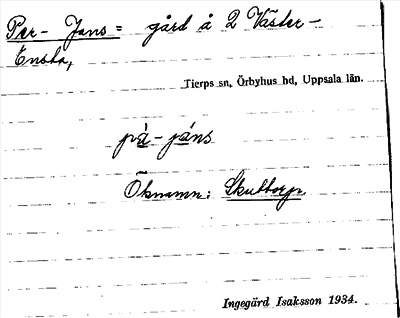 Per- Jans = gård å 2 Väster-
Ensta,
Tierps sn, Örbyhus hd, Uppsala län.
pà - jáns
Öknamn: Skuttorp
Ingegärd Isaksson 1934.